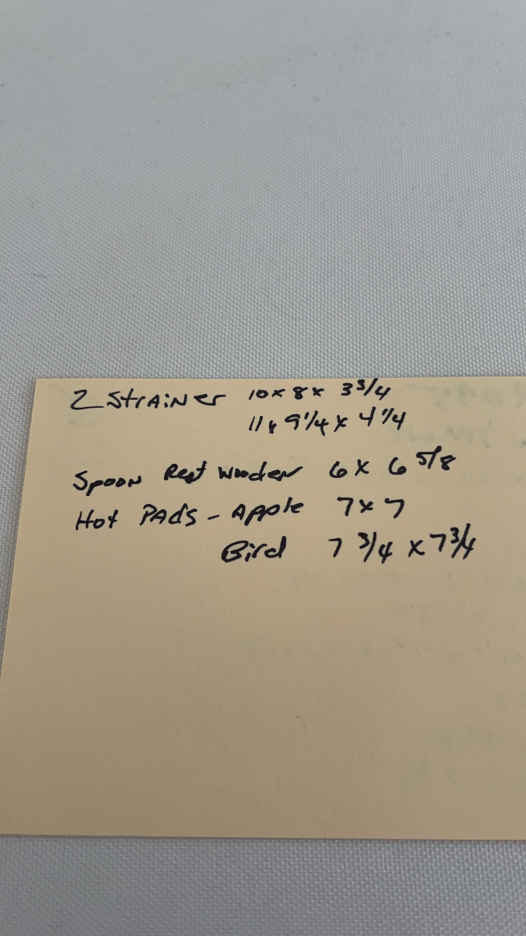 2 Strainer 10 x 8 x 3 3/4
11 x 9 1/4 x 4 1/4
Spoon Rest Wooden 6 x 6 5/8
Hot PAdS - Apple 7 x 7
Bird 7 3/4 x 7 3/4